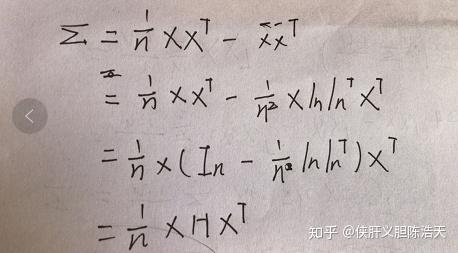 Σ = 1/n XXᵀ - x̄x̄ᵀ
= 1/n XXᵀ - 1/n² X 1n 1nᵀ Xᵀ
= 1/n X (In - 1/n² 1n 1nᵀ) Xᵀ
= 1/n X H Xᵀ
知乎 @侠肝义胆陈浩天